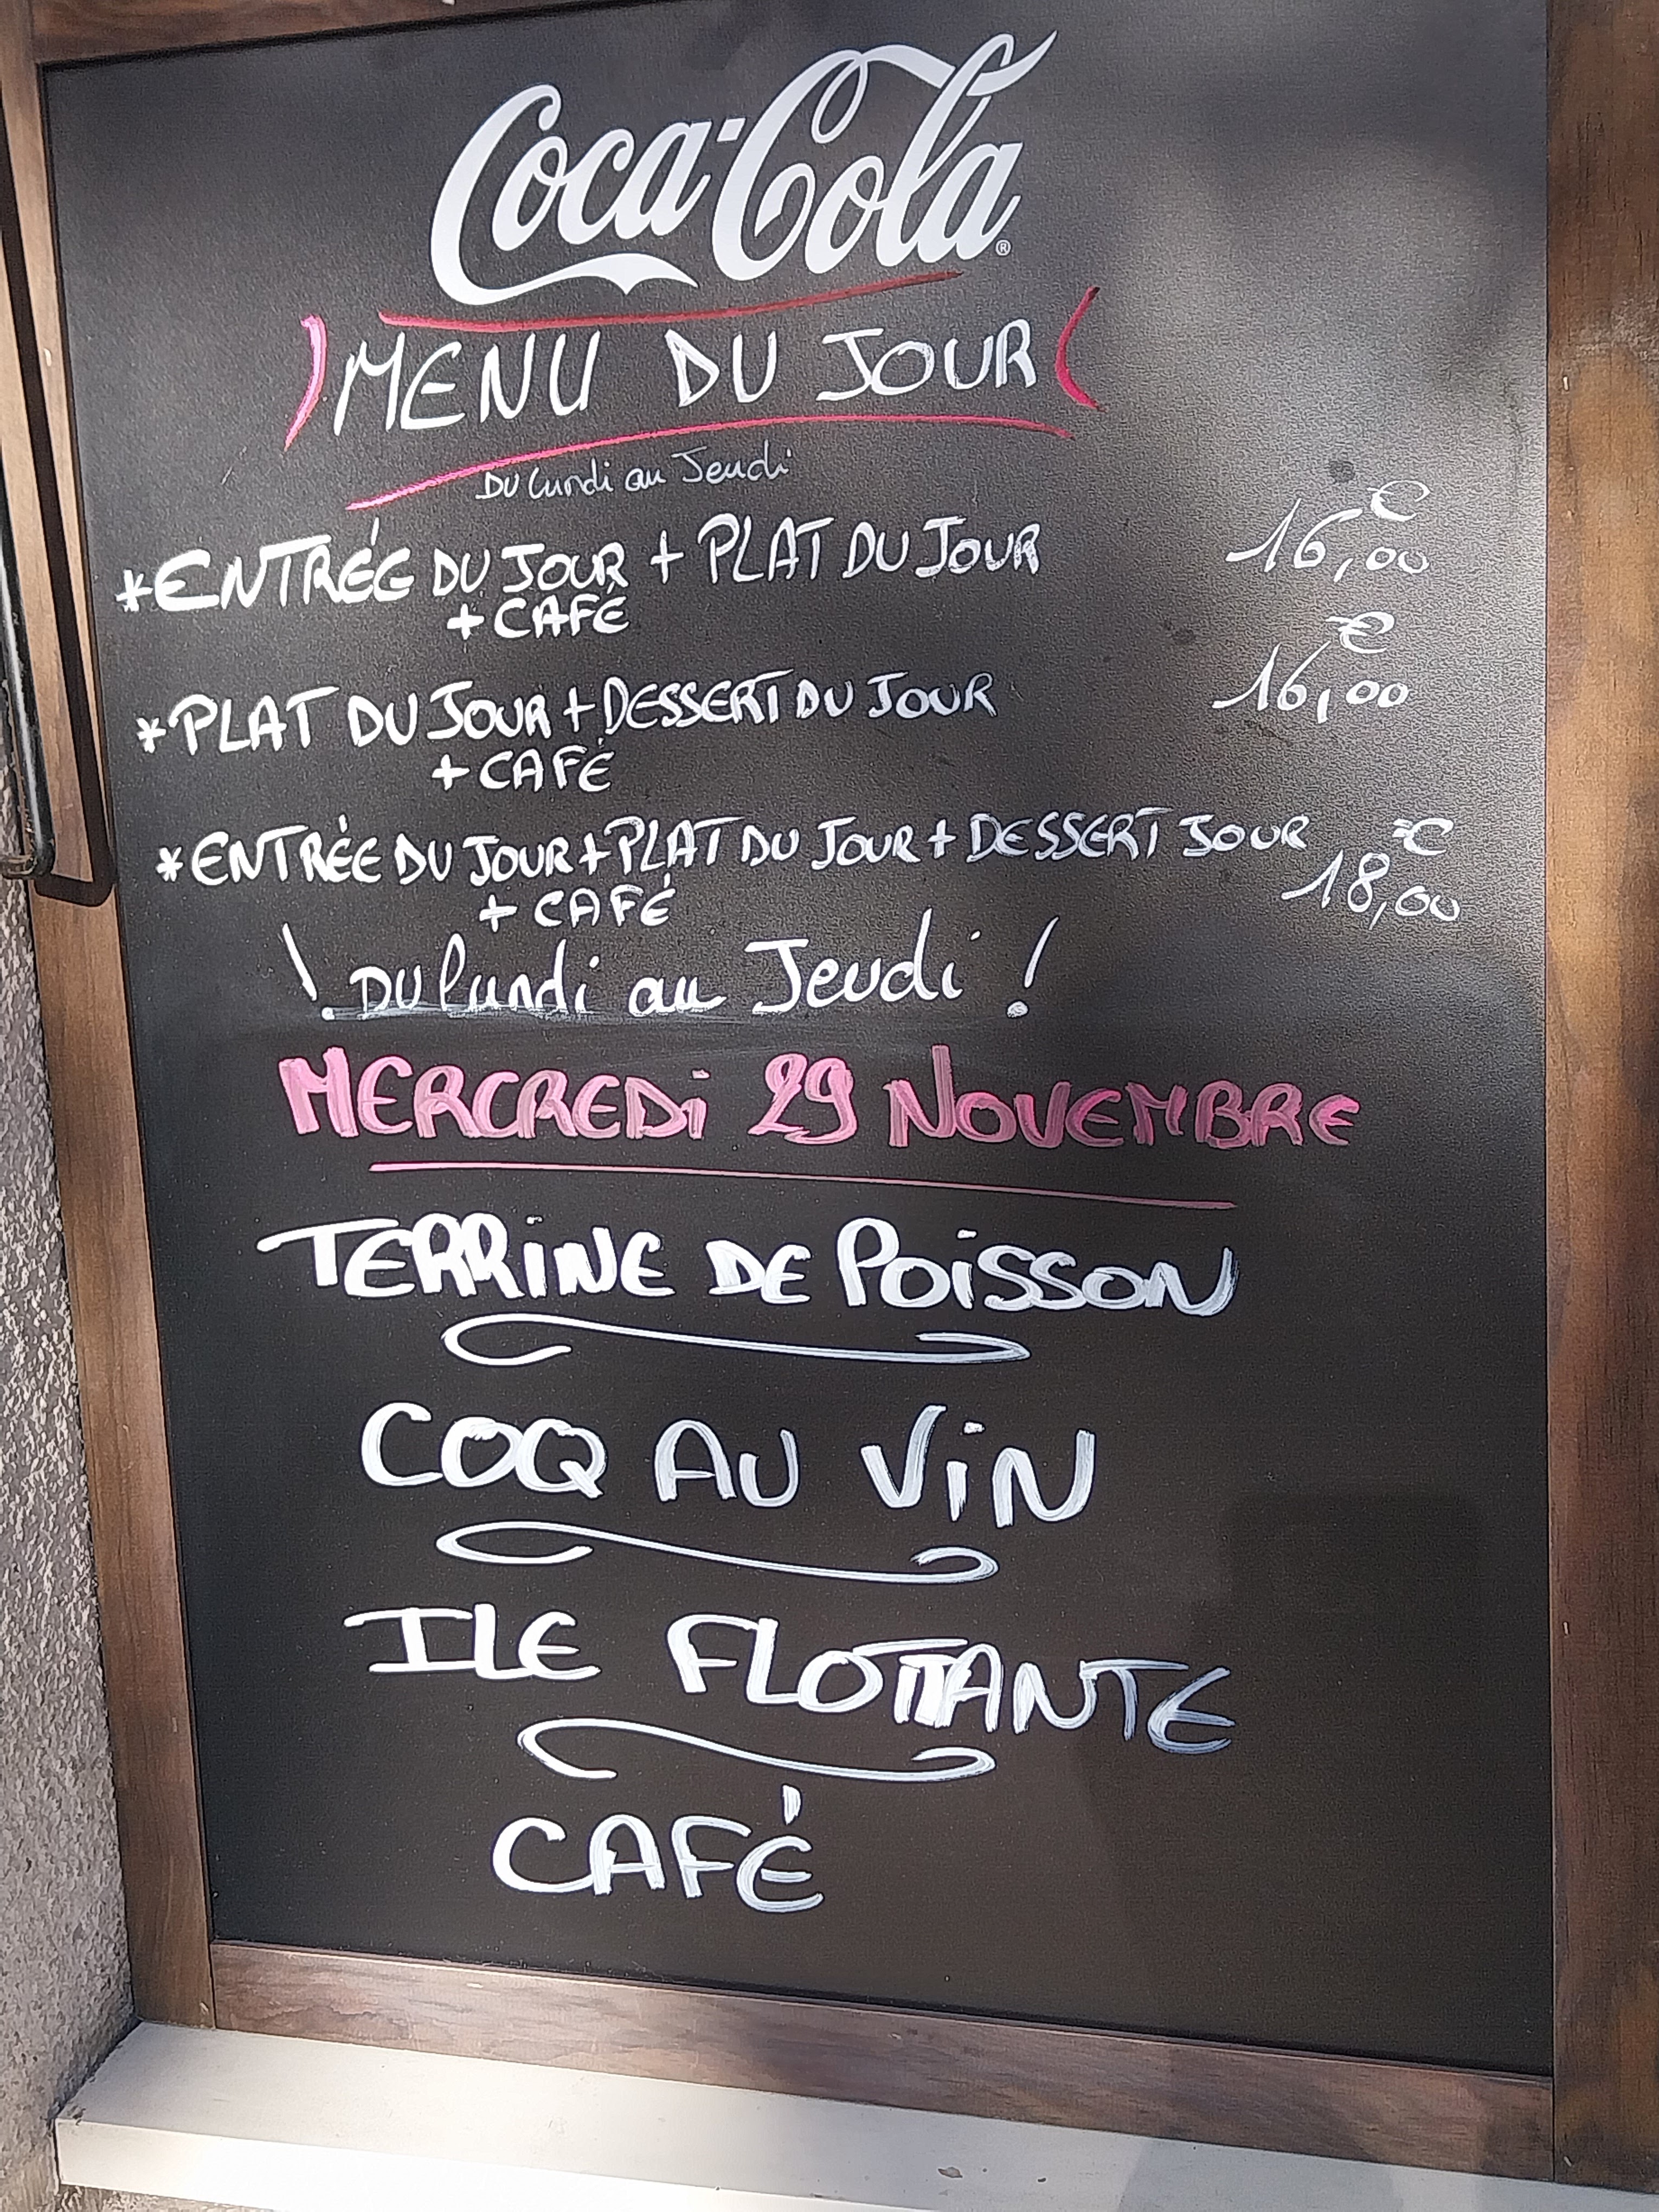 Coca-Cola®
MENU DU JOUR
Du lundi au Jeudi
*ENTRÉE DU JOUR + PLAT DU JOUR 16,00€
+ CAFÉ
*PLAT DU JOUR + DESSERT DU JOUR 16,00€
+ CAFÉ
*ENTRÉE DU JOUR + PLAT DU JOUR + DESSERT JOUR 18,00€
+ CAFÉ
! Du lundi au Jeudi !
MERCREDi 29 NOVEMBRE
TERRiNE DE POiSSON
COQ AU ViN
ILE FLOTTANTE
CAFÉ